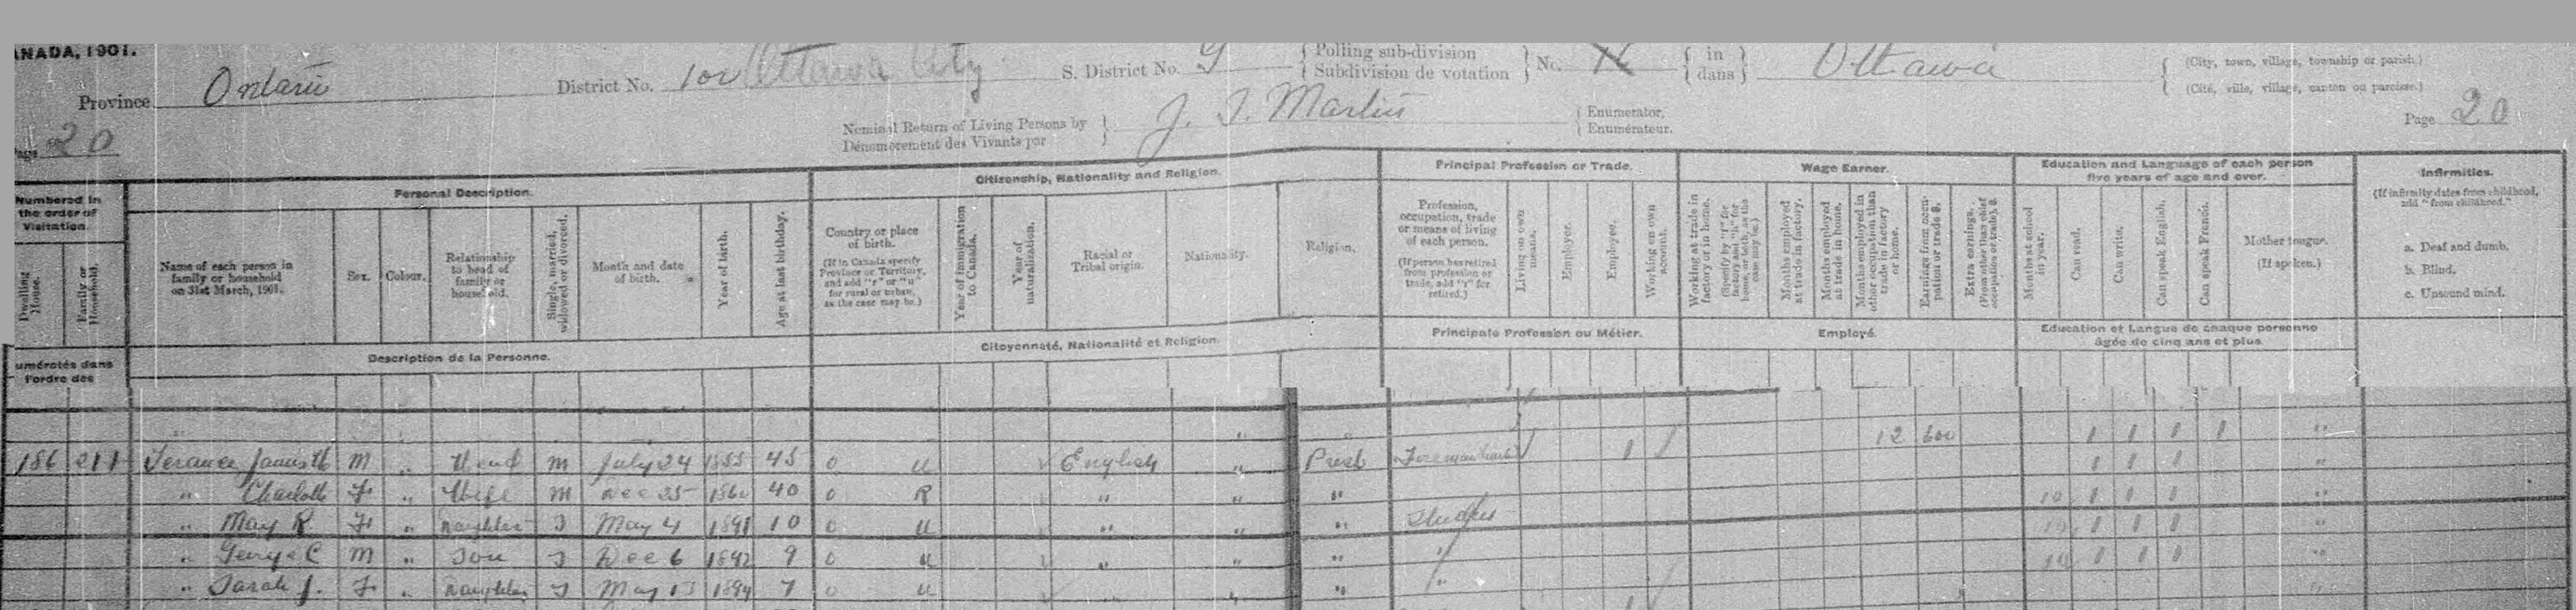 ANADA, 1901.
Province Ontario District No. 100 Ottawa City S. District No. 9 { Polling sub-division Subdivision de votation } No. { in dans } Ottawa { (City, town, village, township or parish.) (Cité, ville, village, canton ou paroisse.)
Page 20 Nominal Return of Living Persons by Dénombrement des Vivants par } J. I. Martin { Enumerator. Enumérateur. Page 20
Numbered in the order of Visitation. Personal Description. Citizenship, Nationality and Religion. Principal Profession or Trade. Wage Earner. Education and Language of each person five years of age and over. Infirmities.
(If infirmity dates from childhood, add "from childhood.")
Dwelling House. Family or Household. Name of each person in family or household on 31st March, 1901. Sex. Colour. Relationship to head of family or household. Single, married, widowed or divorced. Month and date of birth. Year of birth. Age at last birthday.
Country or place of birth. (If in Canada specify Province or Territory, and add "r" or "u" for rural or urban, as the case may be.) Year of immigration to Canada. Year of naturalization. Racial or Tribal origin. Nationality. Religion.
Profession, occupation, trade or means of living of each person. (If person has retired from profession or trade, add "r" for retired.) Living on own means. Employer. Employee. Working on own account.
Working at trade in factory or in home. (Specify by "f" for factory and "h" for home, or both, as the case may be.) Months employed at trade in factory. Months employed at trade in home. Months employed in other occupation than trade in factory or home. Earnings from occupation or trade $. Extra earnings. (From other than chief occupation or trade), $.
Months at school in year. Can read. Can write. Can speak English. Can speak French. Mother tongue. (If spoken.)
a. Deaf and dumb.
b. Blind.
c. Unsound mind.
umérotés dans l'ordre des Description de la Personne. Citoyenneté, Nationalité et Religion. Principale Profession ou Métier. Employé. Education et Langue de chaque personne âgée de cinq ans et plus
186 211 James H M " Head M July 24 1855 45 o u English " Presb Foreman 1 12 600 1 1 1 1 "
" Charlotte F " Wife M Dec 25 1860 40 o R " " " 1 1 1 "
" May R F " Daughter S May 4 1891 10 o u " " " Student 10 1 1 1 "
" George C M " Son S Dec 6 1892 9 o u " " " " 10 1 1 1 "
" Sarah J. F " Daughter S May 13 1894 7 o u " " " " 10 1 1 1 "